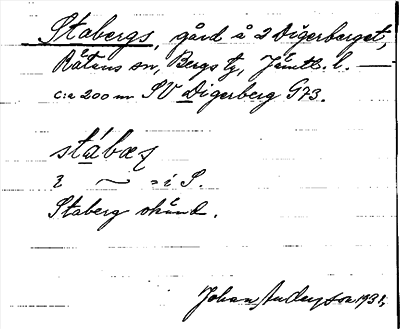 Stabergs, gård å 2 Digerberget,
Rätans sn, Bergs tg, Jämtl. l. —
c:a 200 m SV Digerberg G73.
stábæʒ
~ = i S.
Staberg okänd.
Johan Anderson 1931,